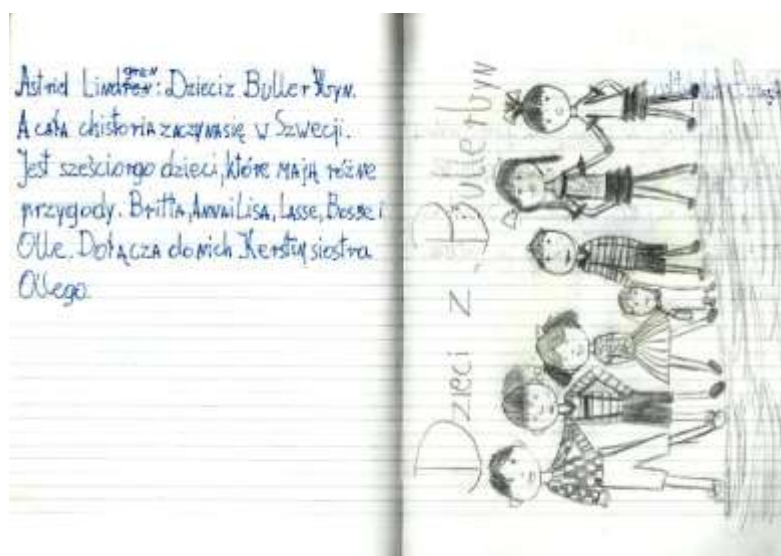 Astrid Lindgren: Dzieci z Bullerbyn.
A cała chistoria zaczyna się w Szwecji.
Jest sześciorgo dzieci, które mają różne
przygody. Britta, Anna i Lisa, Lasse, Bosse i
Olle. Dołącza do nich Kerstin siostra
Ollego.
Dzieci z Bullerbyn